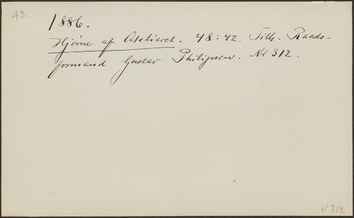 A3.
1886.
Hjørne af Atelieret. 48 : 42 Tilh. Raads-
formand Gustav Philipsen. Nr 312.